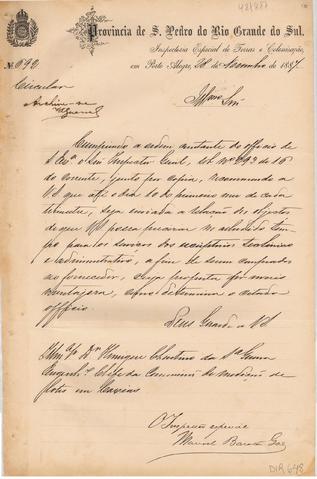 Provincia de S. Pedro do Rio Grande do Sul.
Inspectoria Especial de Terras e Colonisação,
em Porto Alegre, de Dezembro de 1887
Nº 692
Circular
Archive-se
Illmo Snr
Cumprindo a ordem constante do officio de
S. Exª o Snr Inspector Geral, sob Nº de 16
do corrente, junto por copia, recommendo a
VS que até o dia 10 do primeiro mez de cada
semestre, seja enviada a relação dos objectos
de que VS possa precisar no
para os serviços dos escriptorios technicos
e administrativo, a fim de serem comprados
ao fornecedor, cuja proposta for mais
vantajosa, como determina o citado
officio.
Deus Guarde a VS
Illmo Dr Henrique Christino da Sª
Engenhº Chefe da Commissão de medição de
lotes em Caxias
O Inspector especial
Manoel
DIR 648